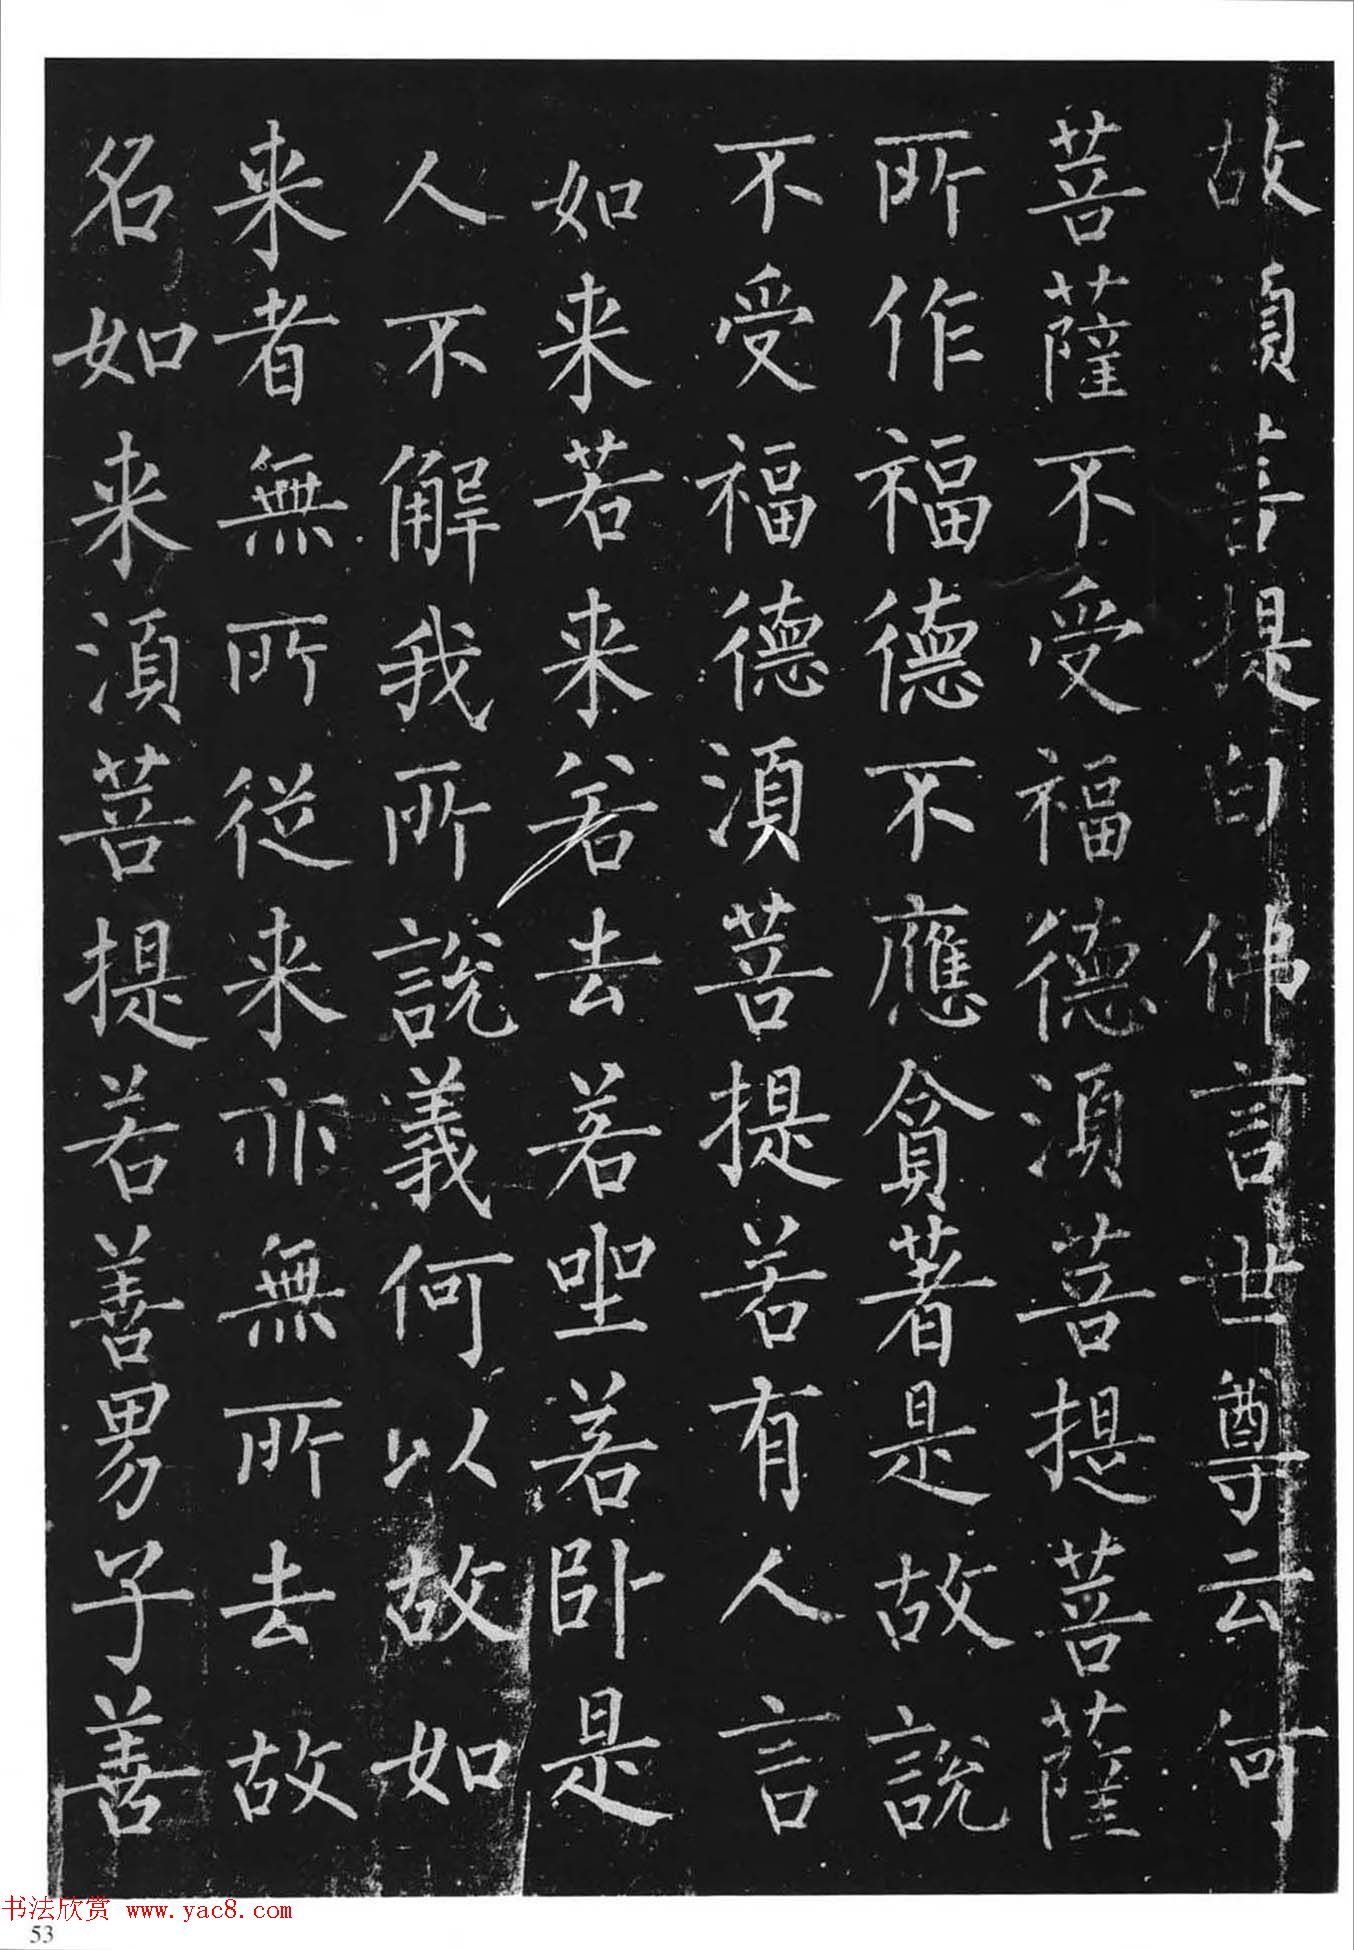 故湏菩提白佛言世尊云何
菩薩不受福德湏菩提菩薩
所作福德不應貪著是故說
不受福德湏菩提若有人言
如来若来若去若坐若卧是
人不解我所說義何以故如
来者無所從来亦無所去故
名如来湏菩提若善男子善
书法欣赏 www.yac8.com
53